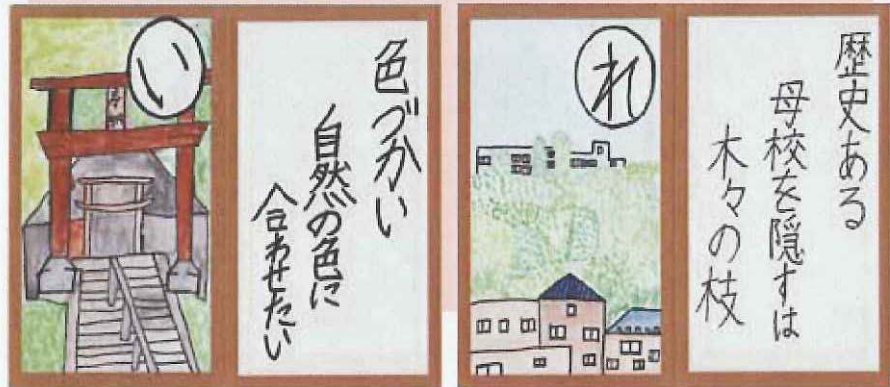 い
色づかい
自然の色に
合わせたい
れ
歴史ある
母校を隠すは
木々の枝